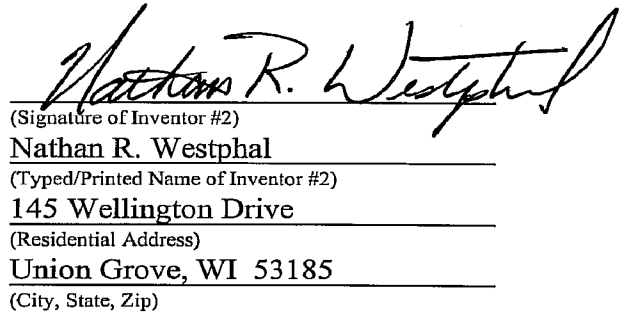 Nathan R. Westphal
(Signature of Inventor #2)
Nathan R. Westphal
(Typed/Printed Name of Inventor #2)
145 Wellington Drive
(Residential Address)
Union Grove, WI 53185
(City, State, Zip)